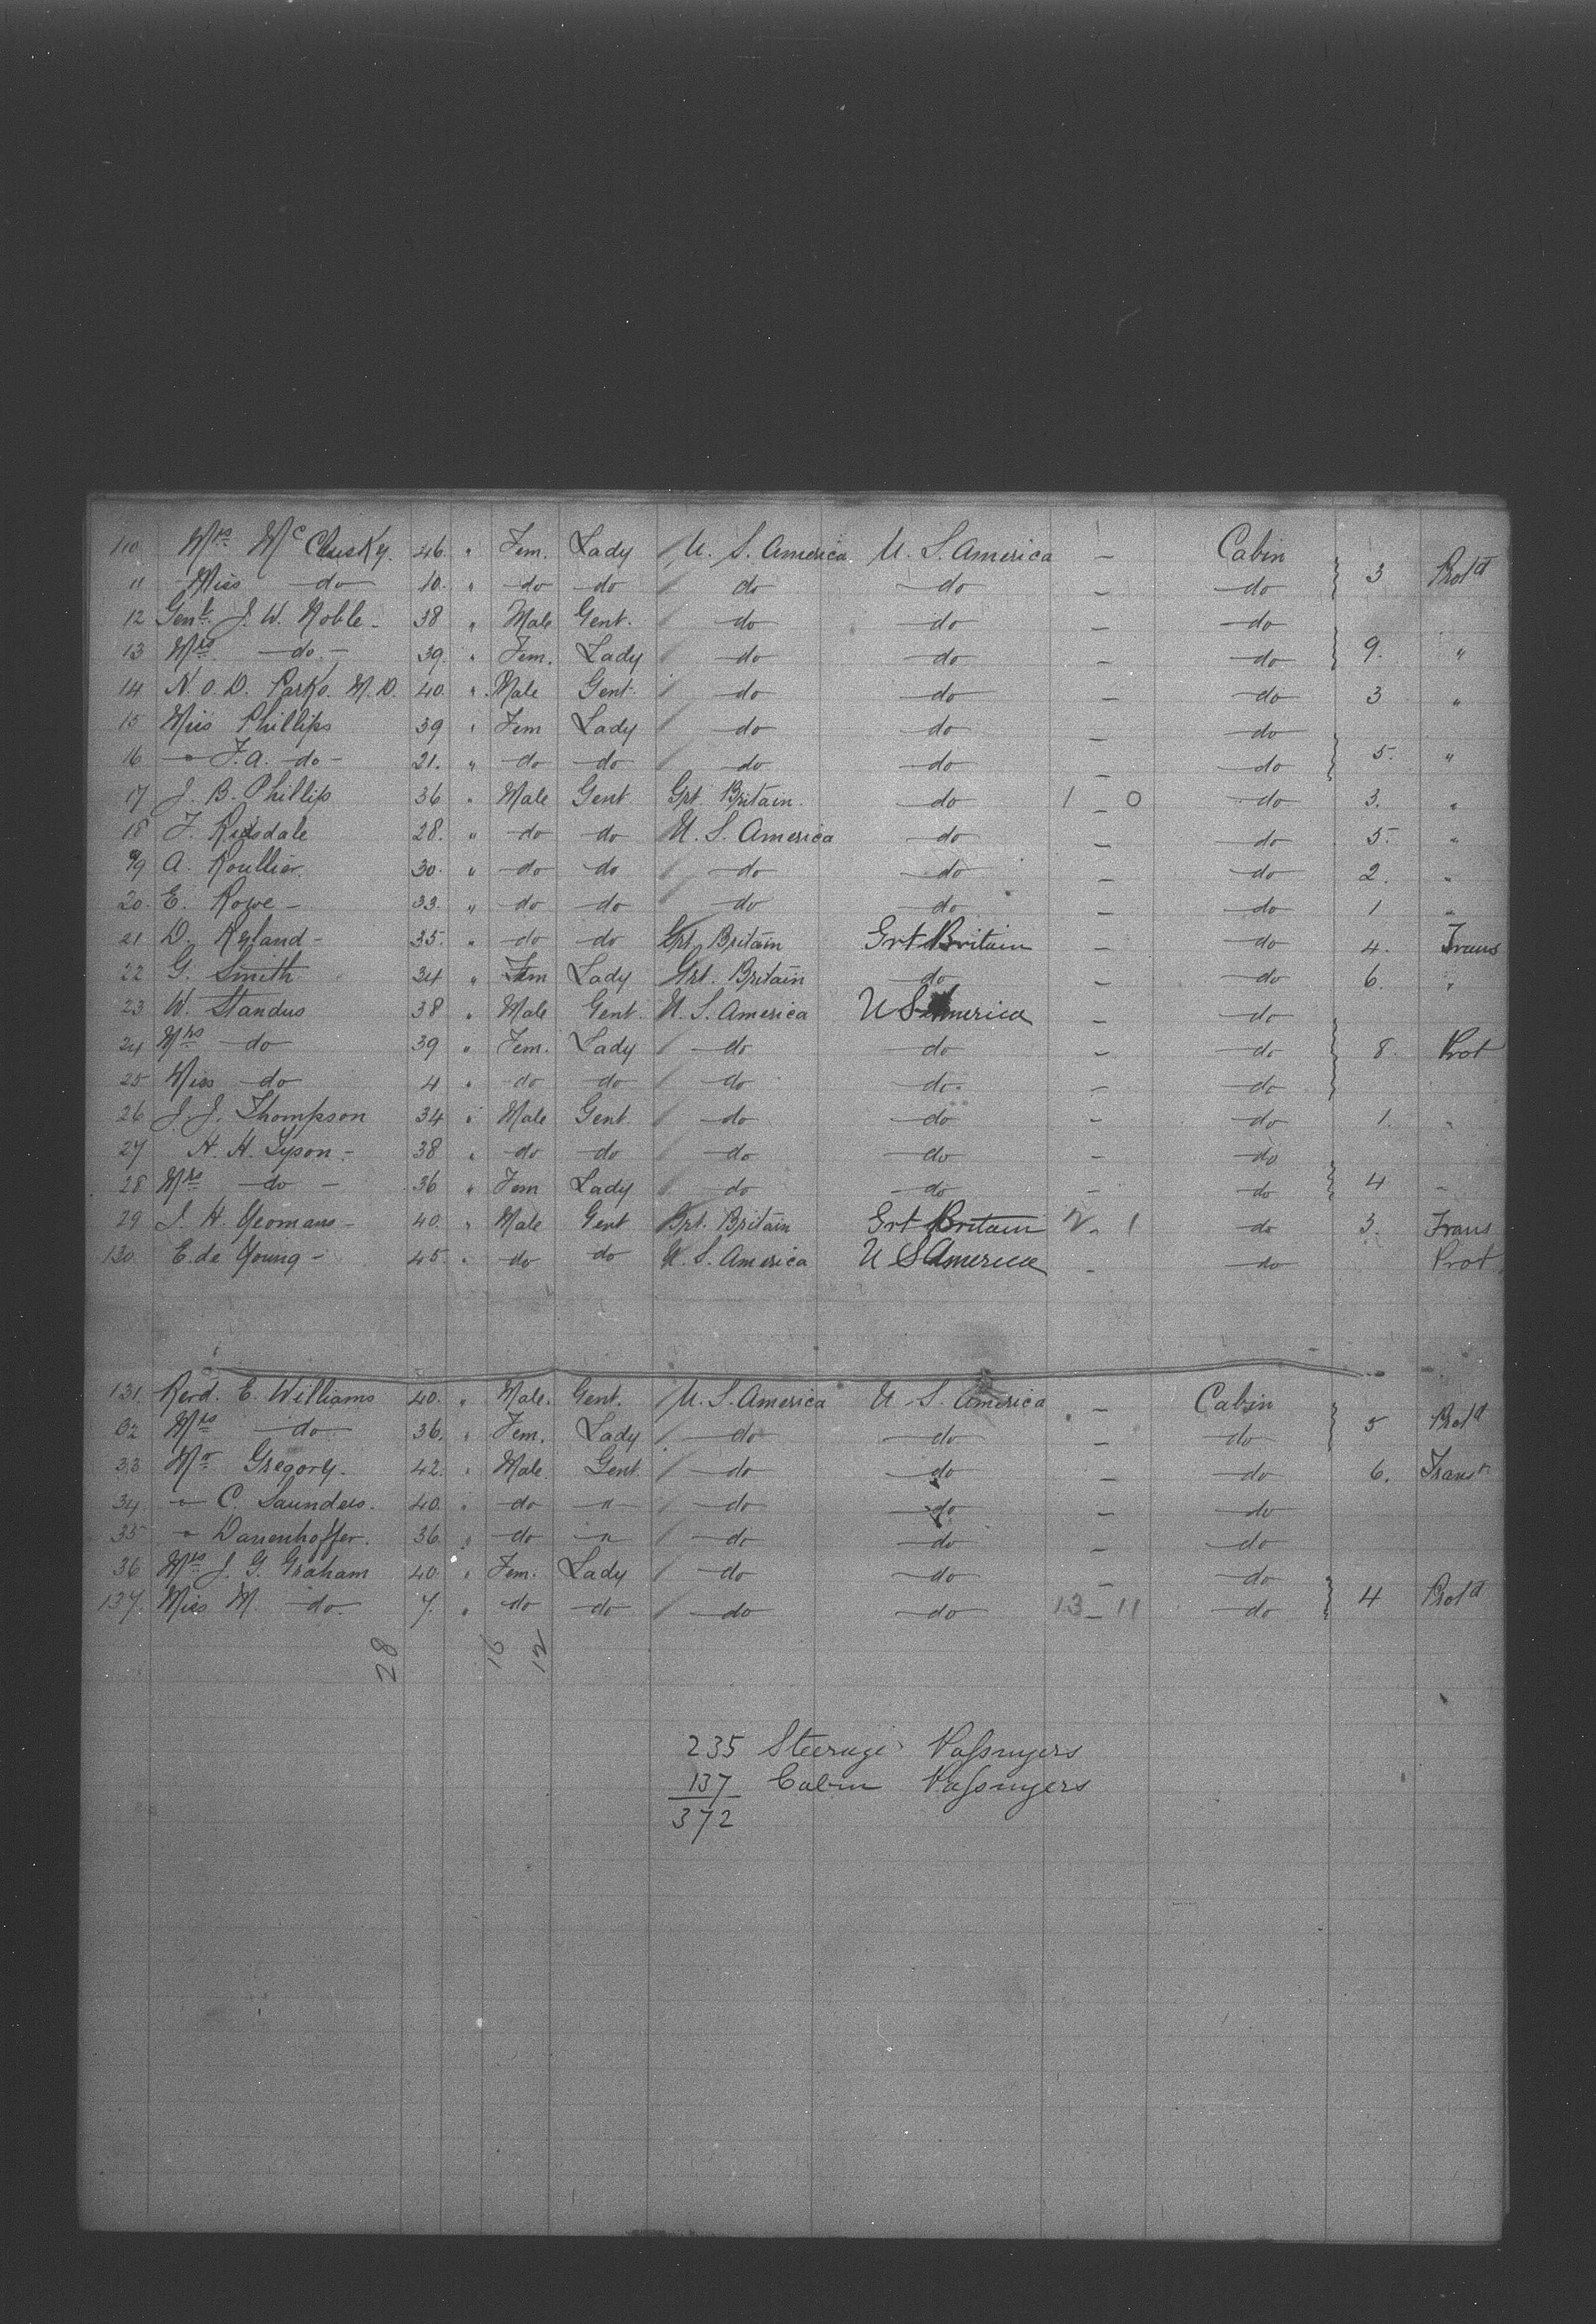 110 Mrs McClusky. 46. " Fem. Lady / U. S. America U. S. America – Cabin
11 Miss do 10. " do do / do do – do } 3 Protd
12 Genl. J. W. Noble 38 " Male Gent. / do do – do
13 Mrs do 39. " Fem. Lady / do do – do } 9. "
14 N. O. D. Parks. M.D. 40. " Male Gent. / do do – do 3 "
15 Miss Phillips 39 " Fem Lady / do do – do
16 " F. A. do 21. " do do / do do – do } 5. "
17 J. B. Phillips 36 " Male Gent Grt. Britain do 1 – 0 do 3. "
18 F. Risdale 28. " do do U. S. America do – do 5. "
19 A. Roullier. 30. " do do / do do – do 2. "
20. E. Rowe 33. " do do / do do – do 1 "
21 D. Ryland 35. " do do Grt. Britain Grt Britain – do 4. Trans
22 G. Smith 34 " Fem Lady Grt. Britain do – do 6. "
23 W. Standus 38 " Male Gent. U. S. America U S America – do
24 Mrs do 39 " Fem. Lady / do do – do } 8. Prot
25 Miss do 4 " do do / do do. – do
26 J. J. Thompson 34 " Male Gent. / do do – do 1. "
27 H. H. Tyson 38 " do do / do do – do
28 Mrs do 36 " Fem Lady / do do – do } 4 "
29 J. H. Yeomans 40. " Male Gent Grt. Britain Grt Britain 2 – 1 do 3. Trans
130. E. de Young 45. " do do U. S. America U S America – do Prot
131. Revd. E. Williams 40. " Male. Gent. / U. S. America U. S. America – Cabin
32 Mrs do 36. " Fem. Lady / do do – do } 5 Protd
33 Mr Gregory. 42. " Male Gent. / do do – do 6. Trans
34. " C. Saunders. 40. " do " / do do – do
35 " Danenhoffer. 36. " do " / do do – do
36 Mrs J. G. Graham 40 " Fem. Lady / do do – do
137. Miss M. do. 7. " do do / do do 13 – 11 do } 4 Protd
28 16 12
235 Steerage Passengers
137 Cabin Passengers
372